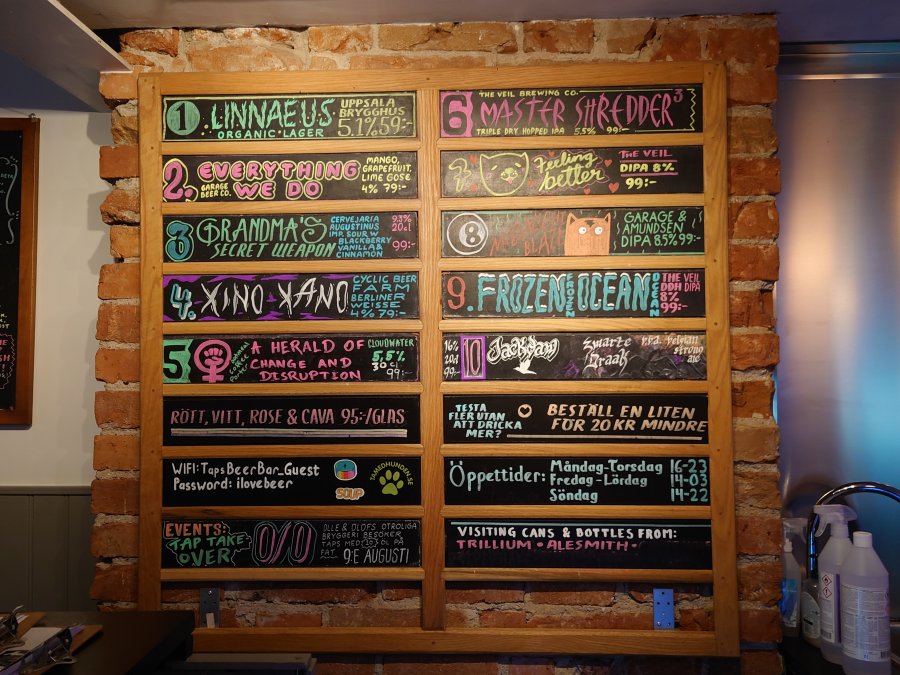 1. LINNAEUS
ORGANIC LAGER
UPPSALA
BRYGGHUS
5.1% 59:-
2. EVERYTHING
WE DO
GARAGE
BEER CO.
MANGO,
GRAPEFRUIT,
LIME GOSE
4% 79:-
3 GRANDMA'S
SECRET WEAPON
CERVEJARIA
AUGUSTINUS
IMP. SOUR W
BLACKBERRY
VANILLA &
CINNAMON
9.3%
20cl
99:-
4. XINO XANO
CYCLIC BEER
FARM
BERLINER
WEISSE
4% 79:-
5
A HERALD OF
CHANGE AND
DISRUPTION
CLOUDWATER
5,5%
30cl
99:-
RÖTT, VITT, ROSE & CAVA 95:-/GLAS
WIFI: TapsBeerBar_Guest
Password: ilovebeer
SOUP
TAMEDHUNDEN.SE
EVENTS:
TAP TAKE
OVER
O/O
OLLE & OLOFS OTROLIGA
BRYGGERI BESÖKER
TAPS MED 10 ÖL PÅ
FAT
9:E AUGUSTI
6 THE VEIL BREWING CO.
MASTER SHREDDER3
TRIPLE DRY HOPPED IPA 5,5% 99:-
7. Feeling
better
THE VEIL
DIPA 8%
99:-
8
GARAGE &
AMUNDSEN
DIPA 8,5% 99:-
9. FROZEN OCEAN
FROZEN
OCEAN
THE VEIL
DDH DIPA
8%
99:-
16%
20cl
99:-
10
Jackdaw
Zwarte
Kraak
strong
ale
TESTA
FLER UTAN
ATT DRICKA
MER?
BESTÄLL EN LITEN
FÖR 20 KR MINDRE
Öppettider:
Måndag-Torsdag 16-23
Fredag-Lördag 14-03
Söndag 14-22
VISITING CANS & BOTTLES FROM:
TRILLIUM • ALESMITH •